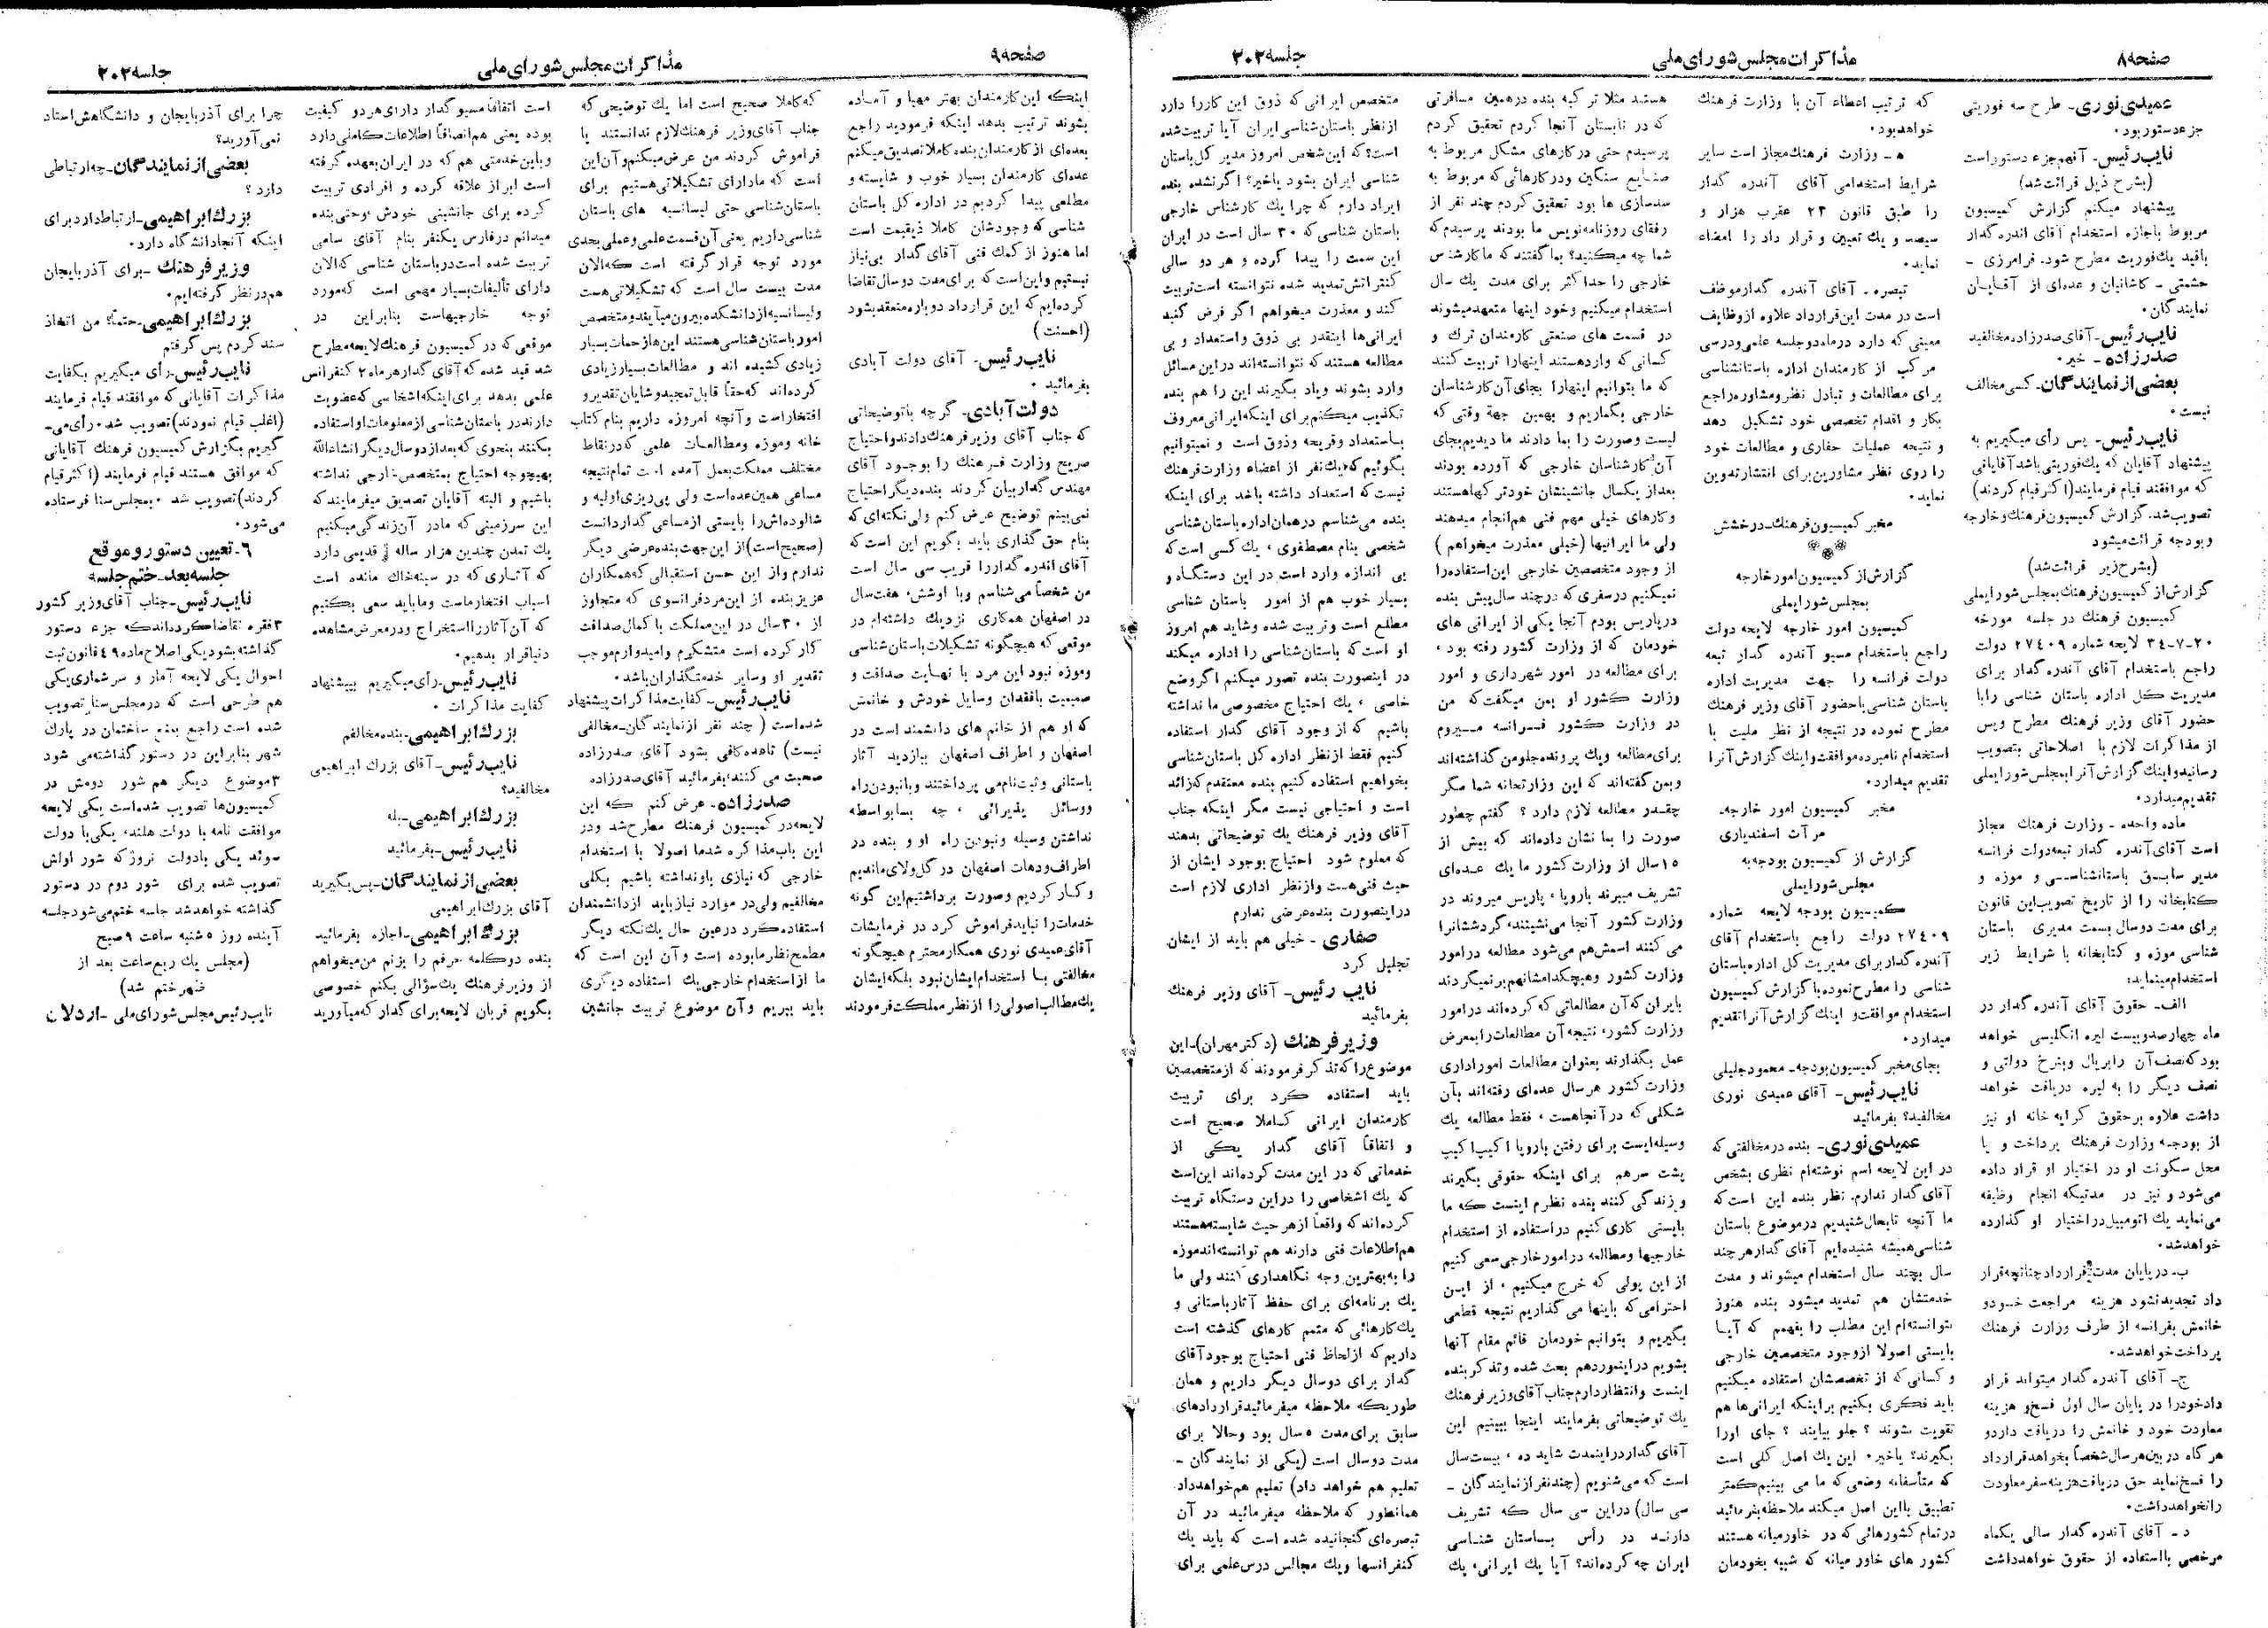 صفحه۸
مذاکرات مجلس شورای ملی
جلسه ۲۰۲
عمیدی نوری- طرح سه فوریتی
جزء دستور بود.
نایب رئیس- آنهم جزء دستور است
(بشرح ذیل قرائت شد)
پیشنهاد میکنم گزارش کمیسیون
مربوط باجازه استخدام آقای اندره گدار
باقید یک فوریت مطرح شود. فرامرزی -
حشمتی - کاشانیان و عده‌ای از آقایان
نمایندگان.
نایب رئیس- آقای صدرزاده مخالفید
صدرزاده - خیر.
بعضی از نمایندگان- کسی مخالف
نیست.
نایب رئیس- پس رأی میگیریم به
پیشنهاد آقایان که یک فوریتی باشد آقایانی
که موافقند قیام فرمایند (اکثر قیام کردند)
تصویب شد. گزارش کمیسیون فرهنگ و خارجه
و بودجه قرائت میشود
(بشرح زیر قرائت شد)
گزارش از کمیسیون فرهنگ بمجلس شورایملی
کمیسیون فرهنگ در جلسه مورخه
۲۰-۷-۳۴ لایحه شماره ۲۷۴۰۹ دولت
راجع باستخدام آقای آندره گدار برای
مدیریت کل اداره باستان شناسی را با
حضور آقای وزیر فرهنگ مطرح و پس
از مذاکرات لازم با اصلاحاتی بتصویب
رسانید و اینک گزارش آنرا بمجلس شورایملی
تقدیم میدارد.
ماده واحده - وزارت فرهنگ مجاز
است آقای آندره گدار تبعه دولت فرانسه
مدیر سابق باستانشناسی و موزه و
کتابخانه را از تاریخ تصویب این قانون
برای مدت دو سال بسمت مدیری باستان
شناسی موزه و کتابخانه با شرایط زیر
استخدام مینماید:
الف- حقوق آقای آندره گدار در
ماه چهارصد و بیست لیره انگلیسی خواهد
بود که نصف آن را بریال و بنرخ دولتی و
نصف دیگر را به لیره دریافت خواهد
داشت علاوه بر حقوق کرایه خانه او نیز
از بودجه وزارت فرهنگ پرداخت و یا
محل سکونت او در اختیار او قرار داده
می‌شود و نیز در مدتیکه انجام وظیفه
می‌نماید یک اتومبیل در اختیار او گذارده
خواهد شد.
ب- در پایان مدت قرارداد چنانچه قرار
داد تجدید نشود هزینه مراجعت خود و
خانمش بفرانسه از طرف وزارت فرهنگ
پرداخت خواهد شد.
ج- آقای آندره گدار میتواند قرار
داد خود را در پایان سال اول فسخ و هزینه
معاودت خود و خانمش را دریافت دارد و
هرگاه در بین هر سال شخصاً بخواهد قرارداد
را فسخ نماید حق دریافت هزینه سفر معاودت
را نخواهد داشت.
د- آقای آندره گدار سالی یکماه
مرخصی با استفاده از حقوق خواهد داشت
که ترتیب اعطاء آن با وزارت فرهنگ
خواهد بود.
ه- وزارت فرهنگ مجاز است سایر
شرایط استخدامی آقای آندره گدار
را طبق قانون ۲۳ عقرب هزار و
سیصد و یک تعیین و قرار داد را امضاء
نماید.
تبصره- آقای آندره گدار موظف
است در مدت این قرارداد علاوه از وظایف
معینی که دارد در ماه دو جلسه علمی و درسی
مرکب از کارمندان اداره باستانشناسی
برای مطالعات و تبادل نظر و مشاوره راجع
بکار و اقدام تخصصی خود تشکیل دهد
و نتیجه عملیات حفاری و مطالعات خود
را روی نظر مشاورین برای انتشار تدوین
نماید.
مخبر کمیسیون فرهنگ- درخشش
گزارش از کمیسیون امور خارجه
بمجلس شورایملی
کمیسیون امور خارجه لایحه دولت
راجع باستخدام مسیو آندره گدار تبعه
دولت فرانسه را جهت مدیریت اداره
باستان شناسی با حضور آقای وزیر فرهنگ
مطرح نموده در نتیجه از نظر ملیت با
استخدام نامبرده موافقت و اینک گزارش آنرا
تقدیم میدارد.
مخبر کمیسیون امور خارجه-
مرآت اسفندیاری
گزارش از کمیسیون بودجه به
مجلس شورایملی
کمیسیون بودجه لایحه شماره
۲۷۴۰۹ دولت راجع باستخدام آقای
آندره گدار برای مدیریت کل اداره باستان
شناسی را مطرح نموده با گزارش کمیسیون
استخدام موافقت و اینک گزارش آنرا تقدیم
میدارد.
بجای مخبر کمیسیون بودجه- محمود جلیلی
نایب رئیس- آقای عمیدی نوری
مخالفید؟ بفرمائید
عمیدی نوری- بنده در مخالفتی که
در این لایحه اسم نوشته‌ام نظری بشخص
آقای گدار ندارم. نظر بنده این است که
ما آنچه تا بحال شنیدیم در موضوع باستان
شناسی همیشه شنیده‌ایم آقای گدار هر چند
سال بچند سال استخدام میشوند و مدت
خدمتشان هم تمدید میشود بنده هنوز
نتوانسته‌ام این مطلب را بفهمم که آیا
بایستی اصولا از وجود متخصصین خارجی
و کسانی که از تخصصشان استفاده میکنیم
باید فکری بکنیم برای اینکه ایرانی‌ها هم
تقویت بشوند؟ جلو بیایند؟ جای او را
بگیرند؟ یا خیر. این یک اصل کلی است
که متأسفانه وضعی که ما می بینیم کمتر
تطبیق با این اصل میکند ملاحظه بفرمائید
در تمام کشورهائی که در خاورمیانه هستند
کشور های خاور میانه که شبیه بخودمان
هستند مثلا ترکیه بنده در همین مسافرتی
که در تابستان آنجا کردم تحقیق کردم
پرسیدم حتی در کارهای مشکل مربوط به
صنایع سنگین و در کارهائی که مربوط به
سدسازی ها بود تحقیق کردم چند نفر از
رفقای روزنامه نویس ما بودند پرسیدم که
شما چه میکنید؟ بما گفتند که ما کارشناس
خارجی را حداکثر برای مدت یک سال
استخدام میکنیم و خود اینها متعهد میشوند
در قسمت های صنعتی کارمندان ترک و
کسانی که واردهستند اینها را تربیت کنند
که ما بتوانیم اینها را بجای آن کارشناسان
خارجی بگماریم و بهمین جهة وقتی که
لیست و صورت را بما دادند ما دیدیم بجای
آن کارشناسان خارجی که آورده بودند
بعد از یکسال جانشینشان خود ترکها هستند
و کارهای خیلی مهم فنی هم انجام میدهند
ولی ما ایرانیها (خیلی معذرت میخواهم)
از وجود متخصصین خارجی این استفاده را
نمیکنیم در سفری که در چند سال پیش بنده
در پاریس بودم آنجا یکی از ایرانی های
خودمان که از وزارت کشور رفته بود،
برای مطالعه در امور شهرداری و امور
وزارت کشور او بمن میگفت که من
در وزارت کشور فرانسه میروم
برای مطالعه و یک پرونده جلو من گذاشته‌اند
و بمن گفته‌اند که این وزارتخانه شما مگر
چقدر مطالعه لازم دارد؟ گفتم چطور
صورت را بما نشان داده‌اند که بیش از
۱۵ سال از وزارت کشور ما یک عده‌ای
تشریف میبرند باروپا، پاریس میروند در
وزارت کشور آنجا می‌نشینند، گردششانرا
می کنند اسمش هم می‌شود مطالعه در امور
وزارت کشور و هیچکدامشان هم بر نمیگردند
بایران که آن مطالعاتی که کرده‌اند در امور
وزارت کشور، نتیجه آن مطالعات را بمعرض
عمل بگذارند بعنوان مطالعات امور اداری
وزارت کشور هر سال عده‌ای رفته‌اند بآن
شکلی که در آنجا هست، فقط مطالعه یک
وسیله‌ایست برای رفتن باروپا اکیپ اکیپ
پشت سرهم برای اینکه حقوقی بگیرند
و زندگی کنند بنده نظرم اینست که ما
بایستی کاری کنیم در استفاده از استخدام
خارجیها و مطالعه در امور خارجی سعی کنیم
از این پولی که خرج میکنیم، از این
احترامی که باینها می گذاریم نتیجه قطعی
بگیریم و بتوانیم خودمان قائم مقام آنها
بشویم در اینمورد هم بحث شده و تذکر بنده
اینست و انتظار دارم جناب آقای وزیر فرهنگ
یک توضیحاتی بفرمایند اینجا ببینیم این
آقای گدار در اینمدت شاید ده، بیست سال
است که می‌شنویم (چند نفر از نمایندگان -
سی سال) در این سی سال که تشریف
دارند در رأس باستان شناسی
ایران چه کرده‌اند؟ آیا یک ایرانی، یک
متخصص ایرانی که ذوق این کار را دارد
از نظر باستان‌شناسی ایران آیا تربیت شده
است؟ که این شخص امروز مدیر کل باستان
شناسی ایران بشود یا خیر؟ اگر نشده بنده
ایراد دارم که چرا یک کارشناس خارجی
باستان شناسی که ۳۰ سال است در ایران
این سمت را پیدا کرده و هر دو سالی
کنتراتش تمدید شده نتوانسته است تربیت
کند و معذرت میخواهم اگر فرض کنید
ایرانی‌ها اینقدر بی ذوق و استعداد و بی
مطالعه هستند که نتوانسته‌اند در این مسائل
وارد بشوند و یاد بگیرند این را هم بنده
تکذیب میکنم برای اینکه ایرانی معروف
باستعداد و قریحه و ذوق است و نمیتوانیم
بگوئیم که یک نفر از اعضاء وزارت فرهنگ
نیست که استعداد داشته باشد برای اینکه
بنده می‌شناسم در همان اداره باستان‌شناسی
شخصی بنام مصطفوی، یک کسی است که
بی اندازه وارد است در این دستگاه و
بسیار خوب هم از امور باستان شناسی
مطلع است و تربیت شده و شاید هم امروز
او است که باستان‌شناسی را اداره میکند
در اینصورت بنده تصور میکنم اگر وضع
خاصی، یک احتیاج مخصوصی ما نداشته
باشیم که از وجود آقای گدار استفاده
کنیم فقط از نظر اداره کل باستان‌شناسی
بخواهیم استفاده کنیم بنده معتقدم که زائد
است و احتیاجی نیست مگر اینکه جناب
آقای وزیر فرهنگ یک توضیحاتی بدهند
که معلوم شود احتیاج بوجود ایشان از
حیث فنی هست و از نظر اداری لازم است
در اینصورت بنده عرضی ندارم
صفاری - خیلی هم باید از ایشان
تجلیل کرد
نایب رئیس- آقای وزیر فرهنگ
بفرمائید
وزیر فرهنگ (دکتر مهران)- این
موضوع را که تذکر فرمودند که از متخصصین
باید استفاده کرد برای تربیت
کارمندان ایرانی کاملا صحیح است
و اتفاقاً آقای گدار یکی از
خدماتی که در این مدت کرده‌اند این است
که یک اشخاصی را در این دستگاه تربیت
کرده‌اند که واقعاً از هر حیث شایسته هستند
هم اطلاعات فنی دارند هم توانسته‌اند موزه
را به بهترین وجه نگاهداری کنند ولی ما
یک برنامه‌ای برای حفظ آثار باستانی و
یک کارهائی که متمم کارهای گذشته است
داریم که از لحاظ فنی احتیاج بوجود آقای
گدار برای دو سال دیگر داریم و همان
طوریکه ملاحظه میفرمائید قراردادهای
سابق برای مدت ۵ سال بود و حالا برای
مدت دو سال است (یکی از نمایندگان -
تعلیم هم خواهد داد) تعلیم هم خواهد داد
همانطور که ملاحظه میفرمائید در آن
تبصره‌ای گنجانیده شده است که باید یک
کنفرانسها و یک مجالس درس علمی برای
صفحه۹
مذاکرات مجلس شورای ملی
جلسه ۲۰۲
اینکه این کارمندان بهتر مهیا و آماده
بشوند ترتیب بدهد اینکه فرمودید راجع
بعده‌ای از کارمندان بنده کاملا تصدیق میکنم
عده‌ای کارمندان بسیار خوب و شایسته و
مطلعی پیدا کردیم در اداره کل باستان
شناسی که وجودشان کاملا ذیقیمت است
اما هنوز از کمک فنی آقای گدار بی‌نیاز
نیستیم و این است که برای مدت دو سال تقاضا
کرده‌ایم که این قرارداد دوباره منعقد بشود
(احسنت)
نایب رئیس- آقای دولت آبادی
بفرمائید.
دولت آبادی- گرچه با توضیحاتی
که جناب آقای وزیر فرهنگ دادند و احتیاج
صریح وزارت فرهنگ را بوجود آقای
مهندس گدار بیان کردند بنده دیگر احتیاج
نمی‌بینم توضیح عرض کنم ولی نکته‌ای که
بنام حق گذاری باید بگویم این است که
آقای اندره گدار را قریب سی سال است
من شخصاً می‌شناسم و با اوشش، هفت سال
در اصفهان همکاری نزدیک داشته‌ام در
موقعی که هیچگونه تشکیلات باستان‌شناسی
و موزه نبود این مرد با نهایت صداقت و
صمیمیت با فقدان وسایل خودش و خانمش
که او هم از خانم های دانشمند است در
اصفهان و اطراف اصفهان ببازدید آثار
باستانی و ثبت نام می پرداختند و با نبودن راه
و وسائل پذیرائی، چه بسا بواسطه
نداشتن وسیله و نبودن راه او و بنده در
اطراف و دهات اصفهان در گل و لای ماندیم
و کار کردیم و صورت برداشتیم این گونه
خدمات را نباید فراموش کرد در فرمایشات
آقای عمیدی نوری همکار محترم هیچگونه
مخالفتی با استخدام ایشان نبود بلکه ایشان
یک مطالب اصولی را از نظر مملکت فرمودند
که کاملا صحیح است اما یک توضیحی که
جناب آقای وزیر فرهنگ لازم ندانستند یا
فراموش کردند من عرض میکنم و آن این
است که ما دارای تشکیلاتی هستیم برای
باستان‌شناسی حتی لیسانسیه های باستان
شناسی داریم یعنی آن قسمت علمی و عملی بحدی
مورد توجه قرار گرفته است که الان
مدت بیست سال است که تشکیلاتی هست
و لیسانسیه از دانشکده بیرون میآیند و متخصص
امور باستان‌شناسی هستند این‌ها زحمات بسیار
زیادی کشیده اند و مطالعات بسیار زیادی
کرده‌اند که حقاً قابل تمجید و شایان تقدیر و
افتخار است و آنچه امروزه داریم بنام کتاب
خانه و موزه و مطالعات علمی که در نقاط
مختلف مملکت بعمل آمده است تمام نتیجه
مساعی همین عده است ولی پی‌ریزی اولیه و
شالوده‌اش را بایستی از مساعی گدار دانست
(صحیح است) از این جهت بنده عرضی دیگر
ندارم و از این حسن استقبالی که همکاران
عزیز بنده از این مرد فرانسوی که متجاوز
از ۳۰ سال در این مملکت با کمال صداقت
کار کرده است متشکرم و امیدوارم موجب
تقدیر او و سایر خدمتگذاران باشد.
نایب رئیس- کفایت مذاکرات پیشنهاد
شده است (چند نفر از نمایندگان- مخالفی
نیست) تا عده کافی بشود آقای صدرزاده
صحبت می کنند، بفرمائید آقای صدرزاده
صدرزاده- عرض کنم که این
لایحه در کمیسیون فرهنگ مطرح شد و در
این باب مذاکره شد ما اصولا با استخدام
خارجی که نیازی باو نداشته باشیم بکلی
مخالفیم ولی در موارد نیاز باید از دانشمندان
استفاده کرد در عین حال یک نکته دیگر
مطمح نظر ما بوده است و آن این است که
ما از استخدام خارجی یک استفاده دیگری
باید ببریم و آن موضوع تربیت جانشین
است اتفاقاً مسیو گدار دارای هر دو کیفیت
بوده یعنی هم انصافاً اطلاعات کاملی دارد
و باین خدمتی هم که در ایران بعهده گرفته
است ابراز علاقه کرده و افرادی تربیت
کرده برای جانشینی خودش، وحتی بنده
میدانم در فارس یکنفر بنام آقای سامی
تربیت شده است در باستان شناسی که الان
دارای تألیفات بسیار مهمی است که مورد
توجه خارجیهاست بنابراین در
موقعی که در کمیسیون فرهنگ لایحه مطرح
شد قید شده که آقای گدار هر ماه ۲ کنفرانس
علمی بدهد برای اینکه اشخاسی که عضویت
دارند در باستان‌شناسی از معلومات او استفاده
بکنند بنحوی که بعد از دو سال دیگر انشاءالله
بهیچوجه احتیاج بمتخصص خارجی نداشته
باشیم و البته آقایان تصدیق میفرمایند که
این سرزمینی که ما در آن زندگی میکنیم
یک تمدن چندین هزار ساله قدیمی دارد
که آثاری که در سینه خاک مانده است
اسباب افتخار ماست و ما باید سعی بکنیم
که آن آثار را استخراج و در معرض مشاهده
دنیا قرار بدهیم.
نایب رئیس- رأی میگیریم بپیشنهاد
کفایت مذاکرات.
بزرگ ابراهیمی- بنده مخالفم
نایب رئیس- آقای بزرگ ابراهیمی
مخالفید؟
بزرگ ابراهیمی- بله
نایب رئیس- بفرمائید
بعضی از نمایندگان- پس بگیرید
آقای بزرگ ابراهیمی
بزرگ ابراهیمی- اجازه بفرمائید
بنده دو کلمه حرفم را بزنم من میخواهم
از وزیر فرهنگ یک سؤالی بکنم خصوصی
بگویم قربان لایحه برای گدار که میآورید
چرا برای آذربایجان و دانشگاهش استاد
نمی‌آورید؟
بعضی از نمایندگان- چه ارتباطی
دارد؟
بزرگ ابراهیمی- ارتباط دارد برای
اینکه آنجا دانشگاه دارد.
وزیر فرهنگ - برای آذربایجان
هم در نظر گرفته‌ایم.
بزرگ ابراهیمی- حتماً؟ من اتخاذ
سند کردم پس گرفتم
نایب رئیس- رأی میگیریم بکفایت
مذاکرات آقایانی که موافقند قیام فرمایند
(اغلب قیام نمودند) تصویب شد. رأی می-
گیریم بگزارش کمیسیون فرهنگ آقایانی
که موافق هستند قیام فرمایند (اکثر قیام
کردند) تصویب شد. بمجلس سنا فرستاده
می‌شود.
۶- تعیین دستور و موقع
جلسه بعد- ختم جلسه
نایب رئیس- جناب آقای وزیر کشور
۳ فقره تقاضا کرده‌اند که جزء دستور
گذاشته بشود یکی اصلاح ماده ۴۹ قانون ثبت
احوال یکی لایحه آمار و سرشماری یکی
هم طرحی است که در مجلس سنا تصویب
شده است راجع بمنع ساختمان در پارک
شهر بنابراین در دستور گذاشته می شود
۳ موضوع دیگر هم شور دومش در
کمیسیون‌ها تصویب شده است یکی لایحه
موافقت نامه با دولت هلند، یکی با دولت
سوئد یکی با دولت نروژ که شور اولش
تصویب شده برای شور دوم در دستور
گذاشته خواهد شد جلسه ختم می‌شود جلسه
آینده روز ۵ شنبه ساعت ۹ صبح
(مجلس یک ربع ساعت بعد از
ظهر ختم شد)
نایب رئیس مجلس شورای ملی - اردلان